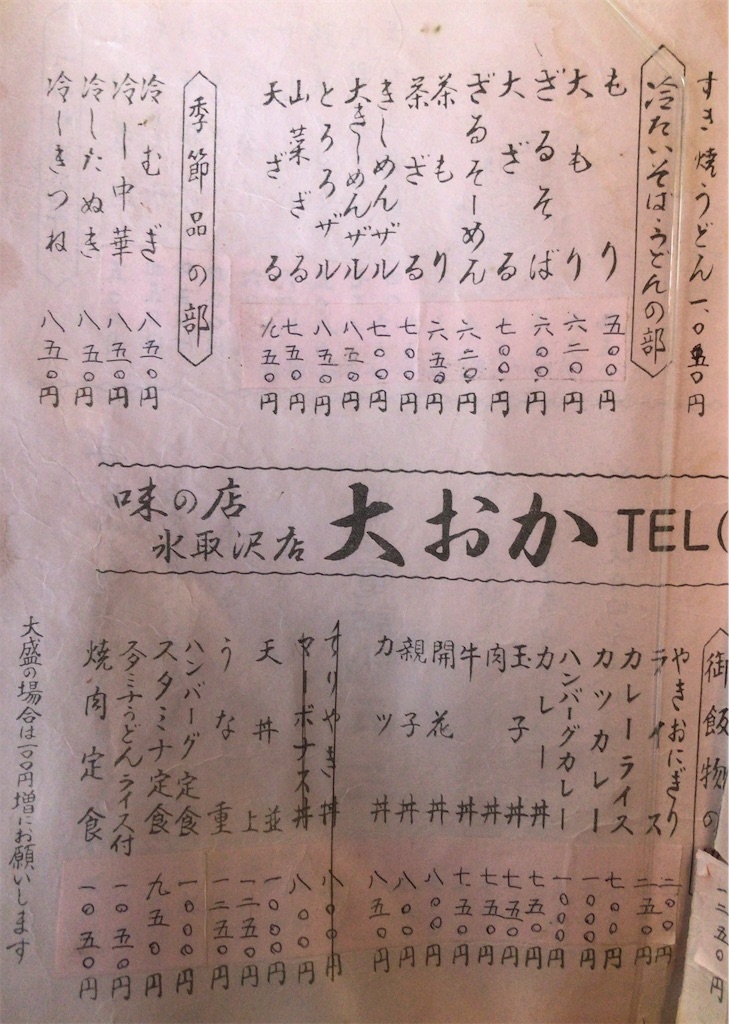 すき焼うどん 一、〇五〇円
冷たいそば・うどんの部
もり 五〇〇円
大もり 六二〇円
ざるそば 六〇〇円
大ざる 七〇〇円
ざるそーめん 六二〇円
茶もり 六五〇円
茶ざる 七〇〇円
きしめんザル 七〇〇円
大きしめんザル 八五〇円
とろろザル 八五〇円
山菜ざる 七五〇円
天ざる 九五〇円
季節品の部
冷むぎ 八五〇円
冷し中華 八五〇円
冷したぬき 八五〇円
冷しきつね 八五〇円
味の店
氷取沢店
大おか TEL(
一二五〇円
御飯物の
やきおにぎり 二〇〇円
ライス 二五〇円
カレーライス 七〇〇円
カツカレー 一〇〇〇円
ハンバーグカレー 一〇〇〇円
カレー丼 七五〇円
玉子丼 七五〇円
肉丼 七五〇円
牛丼 七五〇円
開花丼 八〇〇円
親子丼 八〇〇円
カツ丼 八五〇円
すりやき丼 八〇〇円
マーボナス丼 八〇〇円
天丼 並 一〇〇〇円
上 一二五〇円
うな重 一二五〇円
ハンバーグ定食 一〇〇〇円
スタミナ定食 九五〇円
スタミナうどんライス付 一〇五〇円
焼肉定食 一〇五〇円
大盛の場合は一〇〇円増にお願いします